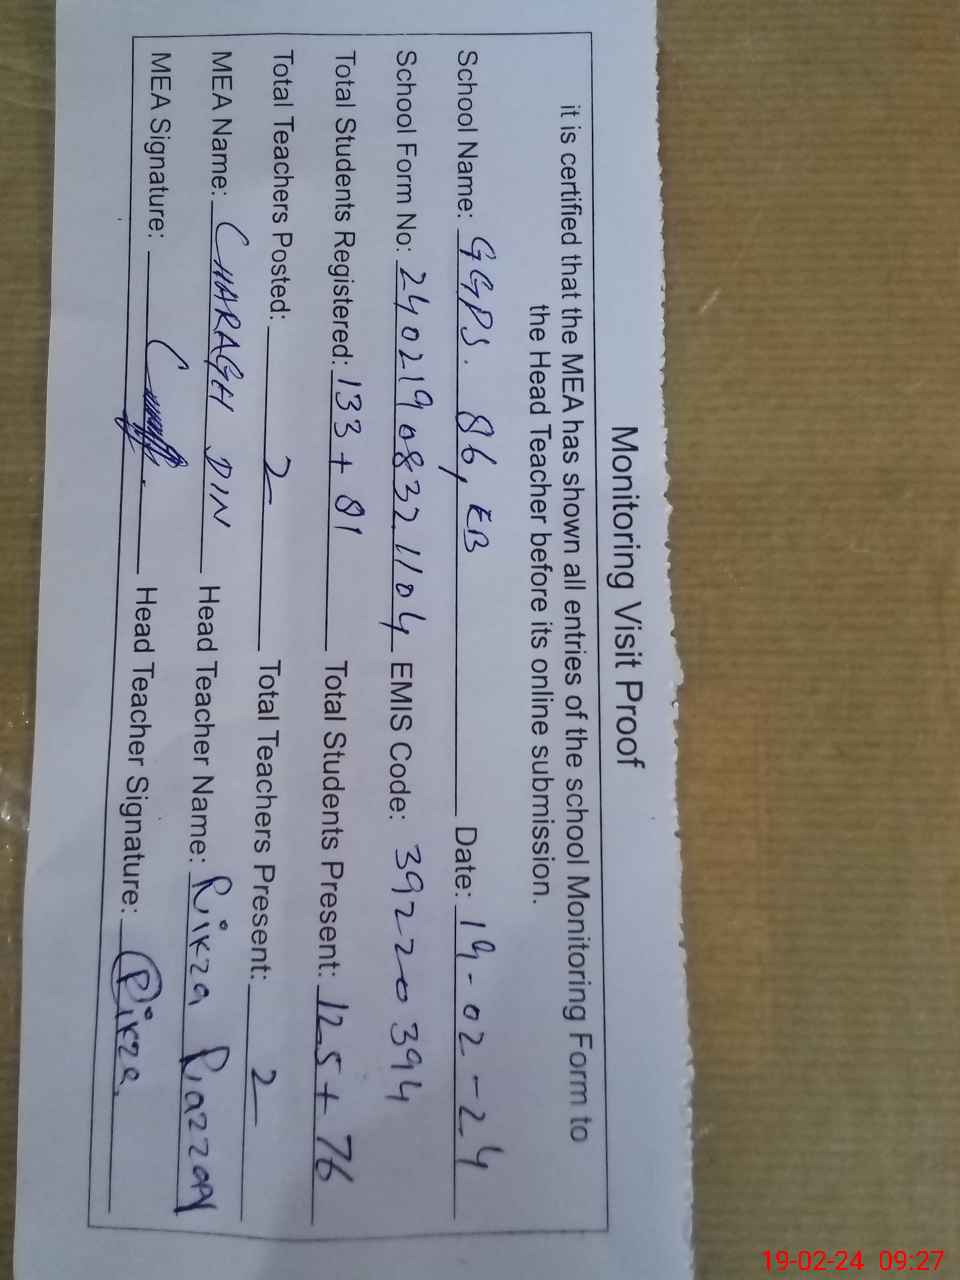 Monitoring Visit Proof
it is certified that the MEA has shown all entries of the school Monitoring Form to
the Head Teacher before its online submission.
School Name: GGPS. 86, EB Date: 19-02-24
School Form No: 24021908321104 EMIS Code: 39220394
Total Students Registered: 133 + 81 Total Students Present: 125 + 76
Total Teachers Posted: 2 Total Teachers Present: 2
MEA Name: CHARAGH DIN Head Teacher Name: Rikza
MEA Signature: Head Teacher Signature: Rikza.
19-02-24 09:27